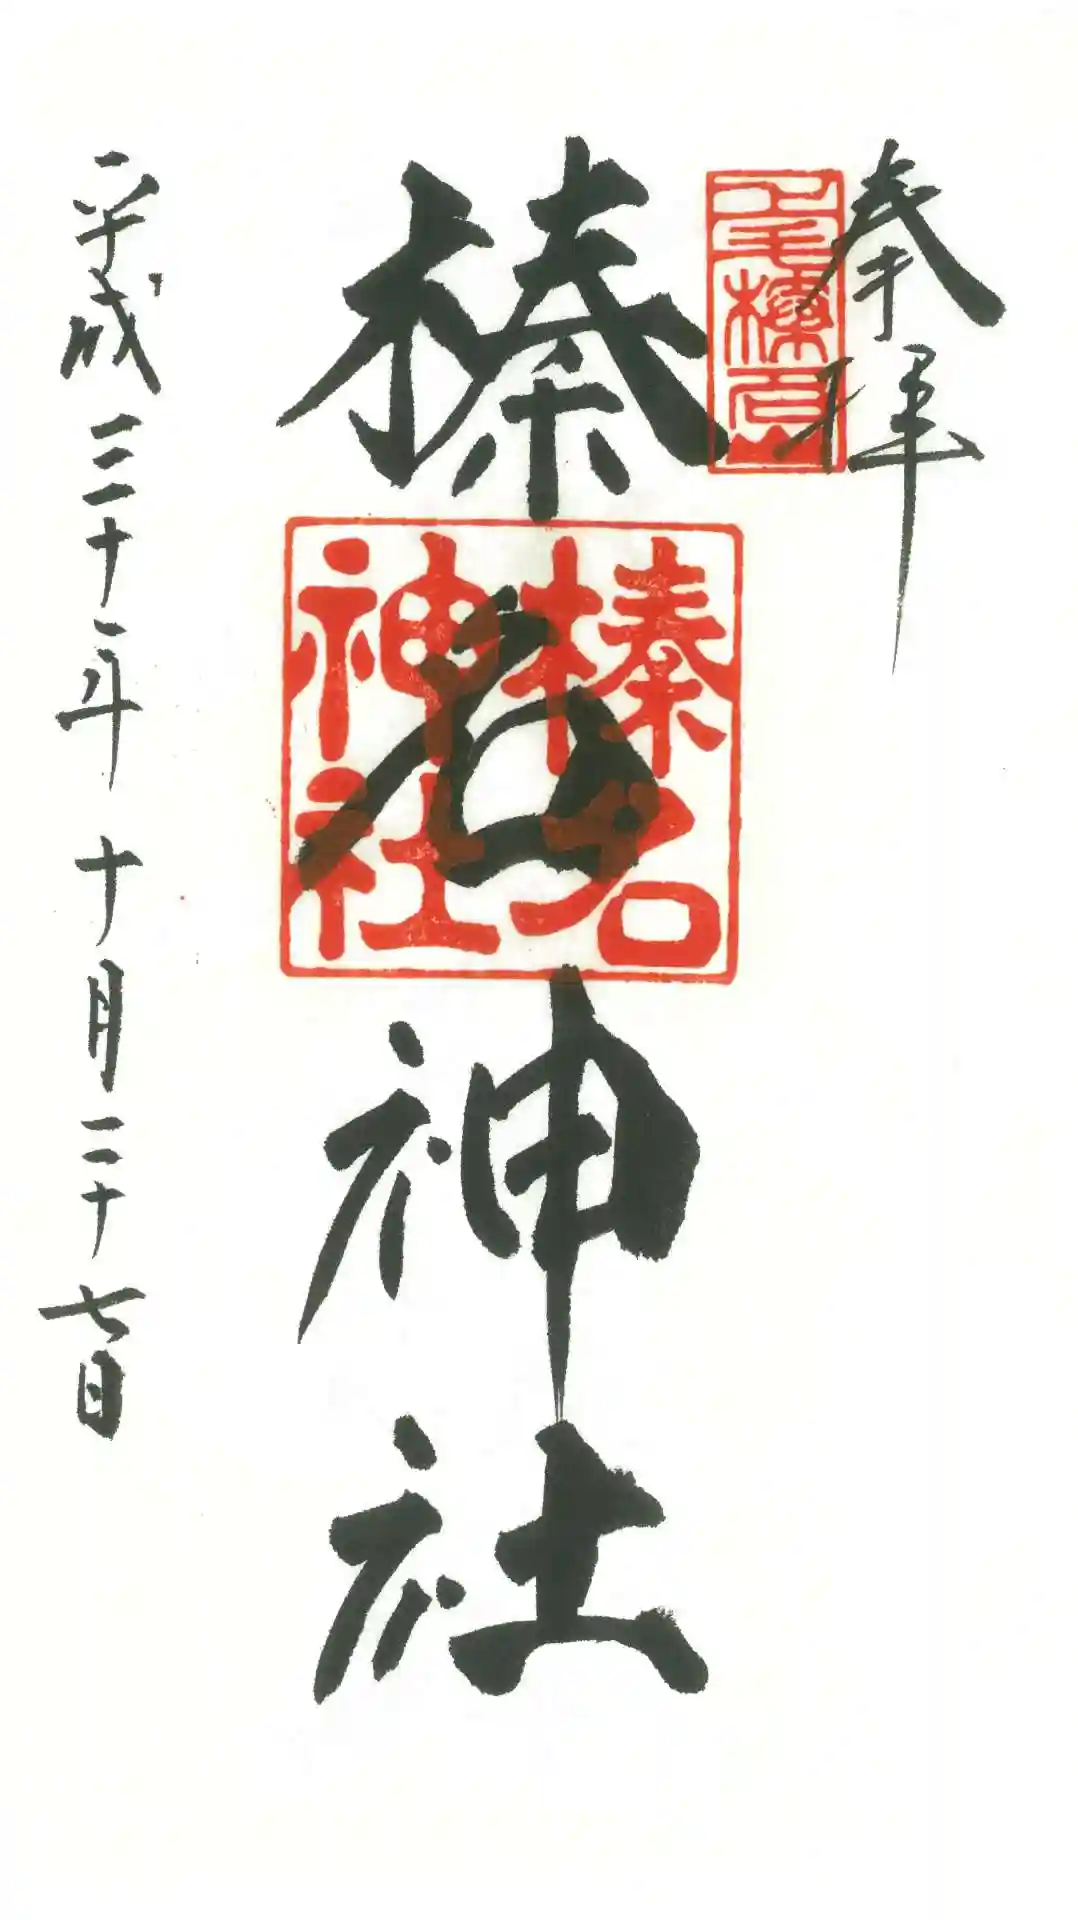 奉拝
上毛榛名山
榛名神社
榛名神社
平成三十年十月二十七日